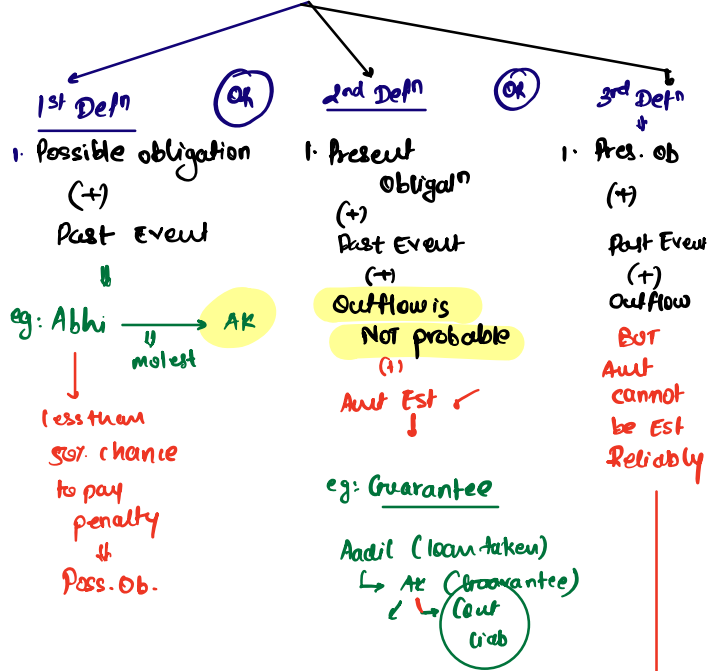 1st Defn
OR
2nd Defn
OR
3rd Defn
1. Possible obligation
(+)
Past Event
eg: Abhi
molest
AK
less than
50% chance
to pay
penalty
Poss. Ob.
1. Present
Obligatn
(+)
Past Event
(+)
Outflow is
NOT probable
(+)
Amt Est ✓
eg: Guarantee
Aadil (loan taken)
AK (Guarantee)
Cont
Liab
1. Pres. Ob
(+)
Past Event
(+)
Outflow
BUT
Amt
cannot
be Est
Reliably